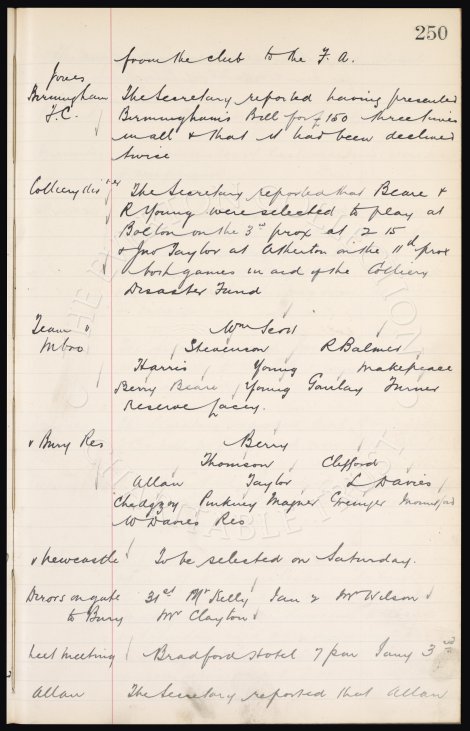 250
from the club to the F. A.
Jones
Birmingham F.C. The Secretary reported having presented
Birmingham's Bill for £150 three times
in all & that it had been declined
twice
Colliery dis The Secretary reported that Beare &
R Young were selected to play at
Bolton on the 3rd prox at 2 15
& Jno Taylor at Atherton on the 11th prox
both games in aid of the Colliery
Disaster Fund
Team v Mbro Wm Scott
Stevenson R Balmer
Harris Young Makepeace
Berry Beare Young Gourlay Turner
Reserve Lacey.
v Bury Res Berry
Thomson Clifford
Allan Taylor L Davies
Chedgzoy Pinkney Magner Grainger Mountford
W Davies Res
v Newcastle To be selected on Saturday.
Dirors on gate 31st Mr Kelly Jan 2 Mr Wilson
to Bury Mr Clayton
next meeting Bradford Hotel 7 pm Jany 3rd
Allan The Secretary reported that Allan